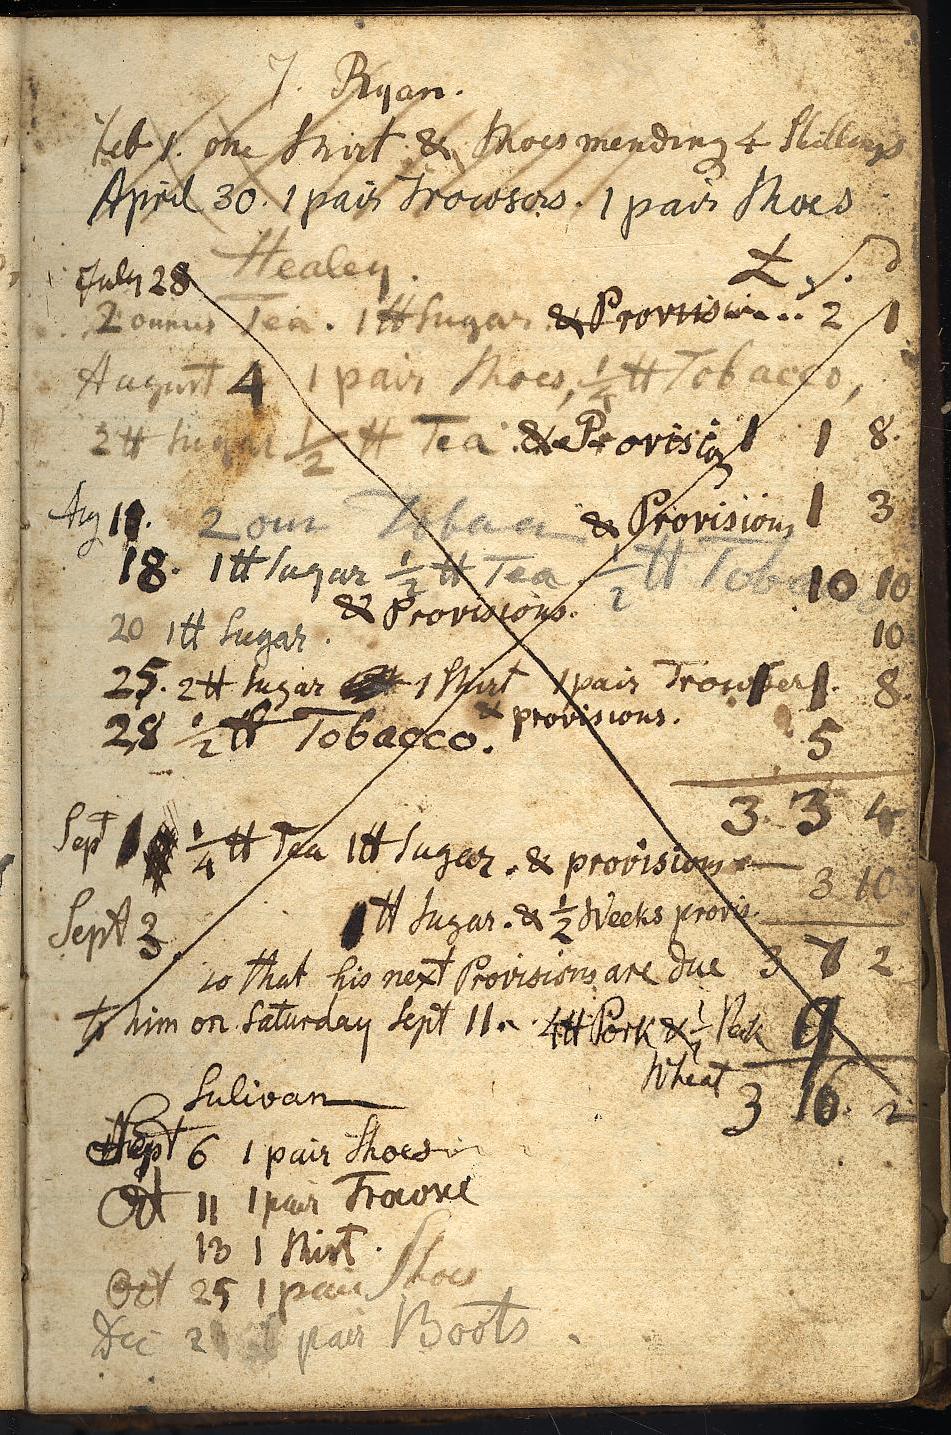 J. Ryan.
Feb 1. one Shirt & Shoes mending 4 Shillings
April 30. 1 pair Trowsers. 1 pair Shoes
Healey. £ s. d
July 28
2 ounces Tea. 1 tt Sugar & Provision... 2 1
August 4 1 pair Shoes, 1/4 tt Tobacco,
2 tt Sugar 1/2 tt Tea & Provision 1 1 8.
Aug 11. 2 oun Tobacco & Provisions 1 3
18. 1 tt Sugar 1/2 tt Tea. 1/2 tt Toba 10 10
& Provisions.
20 1 tt Sugar. 10
25. 2 tt Sugar 1 Shirt 1 pair Trowsers. 1 1 8.
& provisions.
28 1/2 tt Tobacco. 5
3. 3 4
Sept 1 1/4 tt Tea 1 tt Sugar. & provisions — 3 10
Sept 3 1 tt Sugar. & 1/2 Weeks provis.
so that his next Provisions are due 3 7 2
to him on Saturday Sept 11. 4 tt Pork & 1/2 Peck 9
Wheat 3 16. 2
Sulivan
Sept 6 1 pair Shoes
Oct 11 1 pair Trowse
13 1 Shirt.
Oct 25 1 pair Shoes
Dec 1 pair Boots